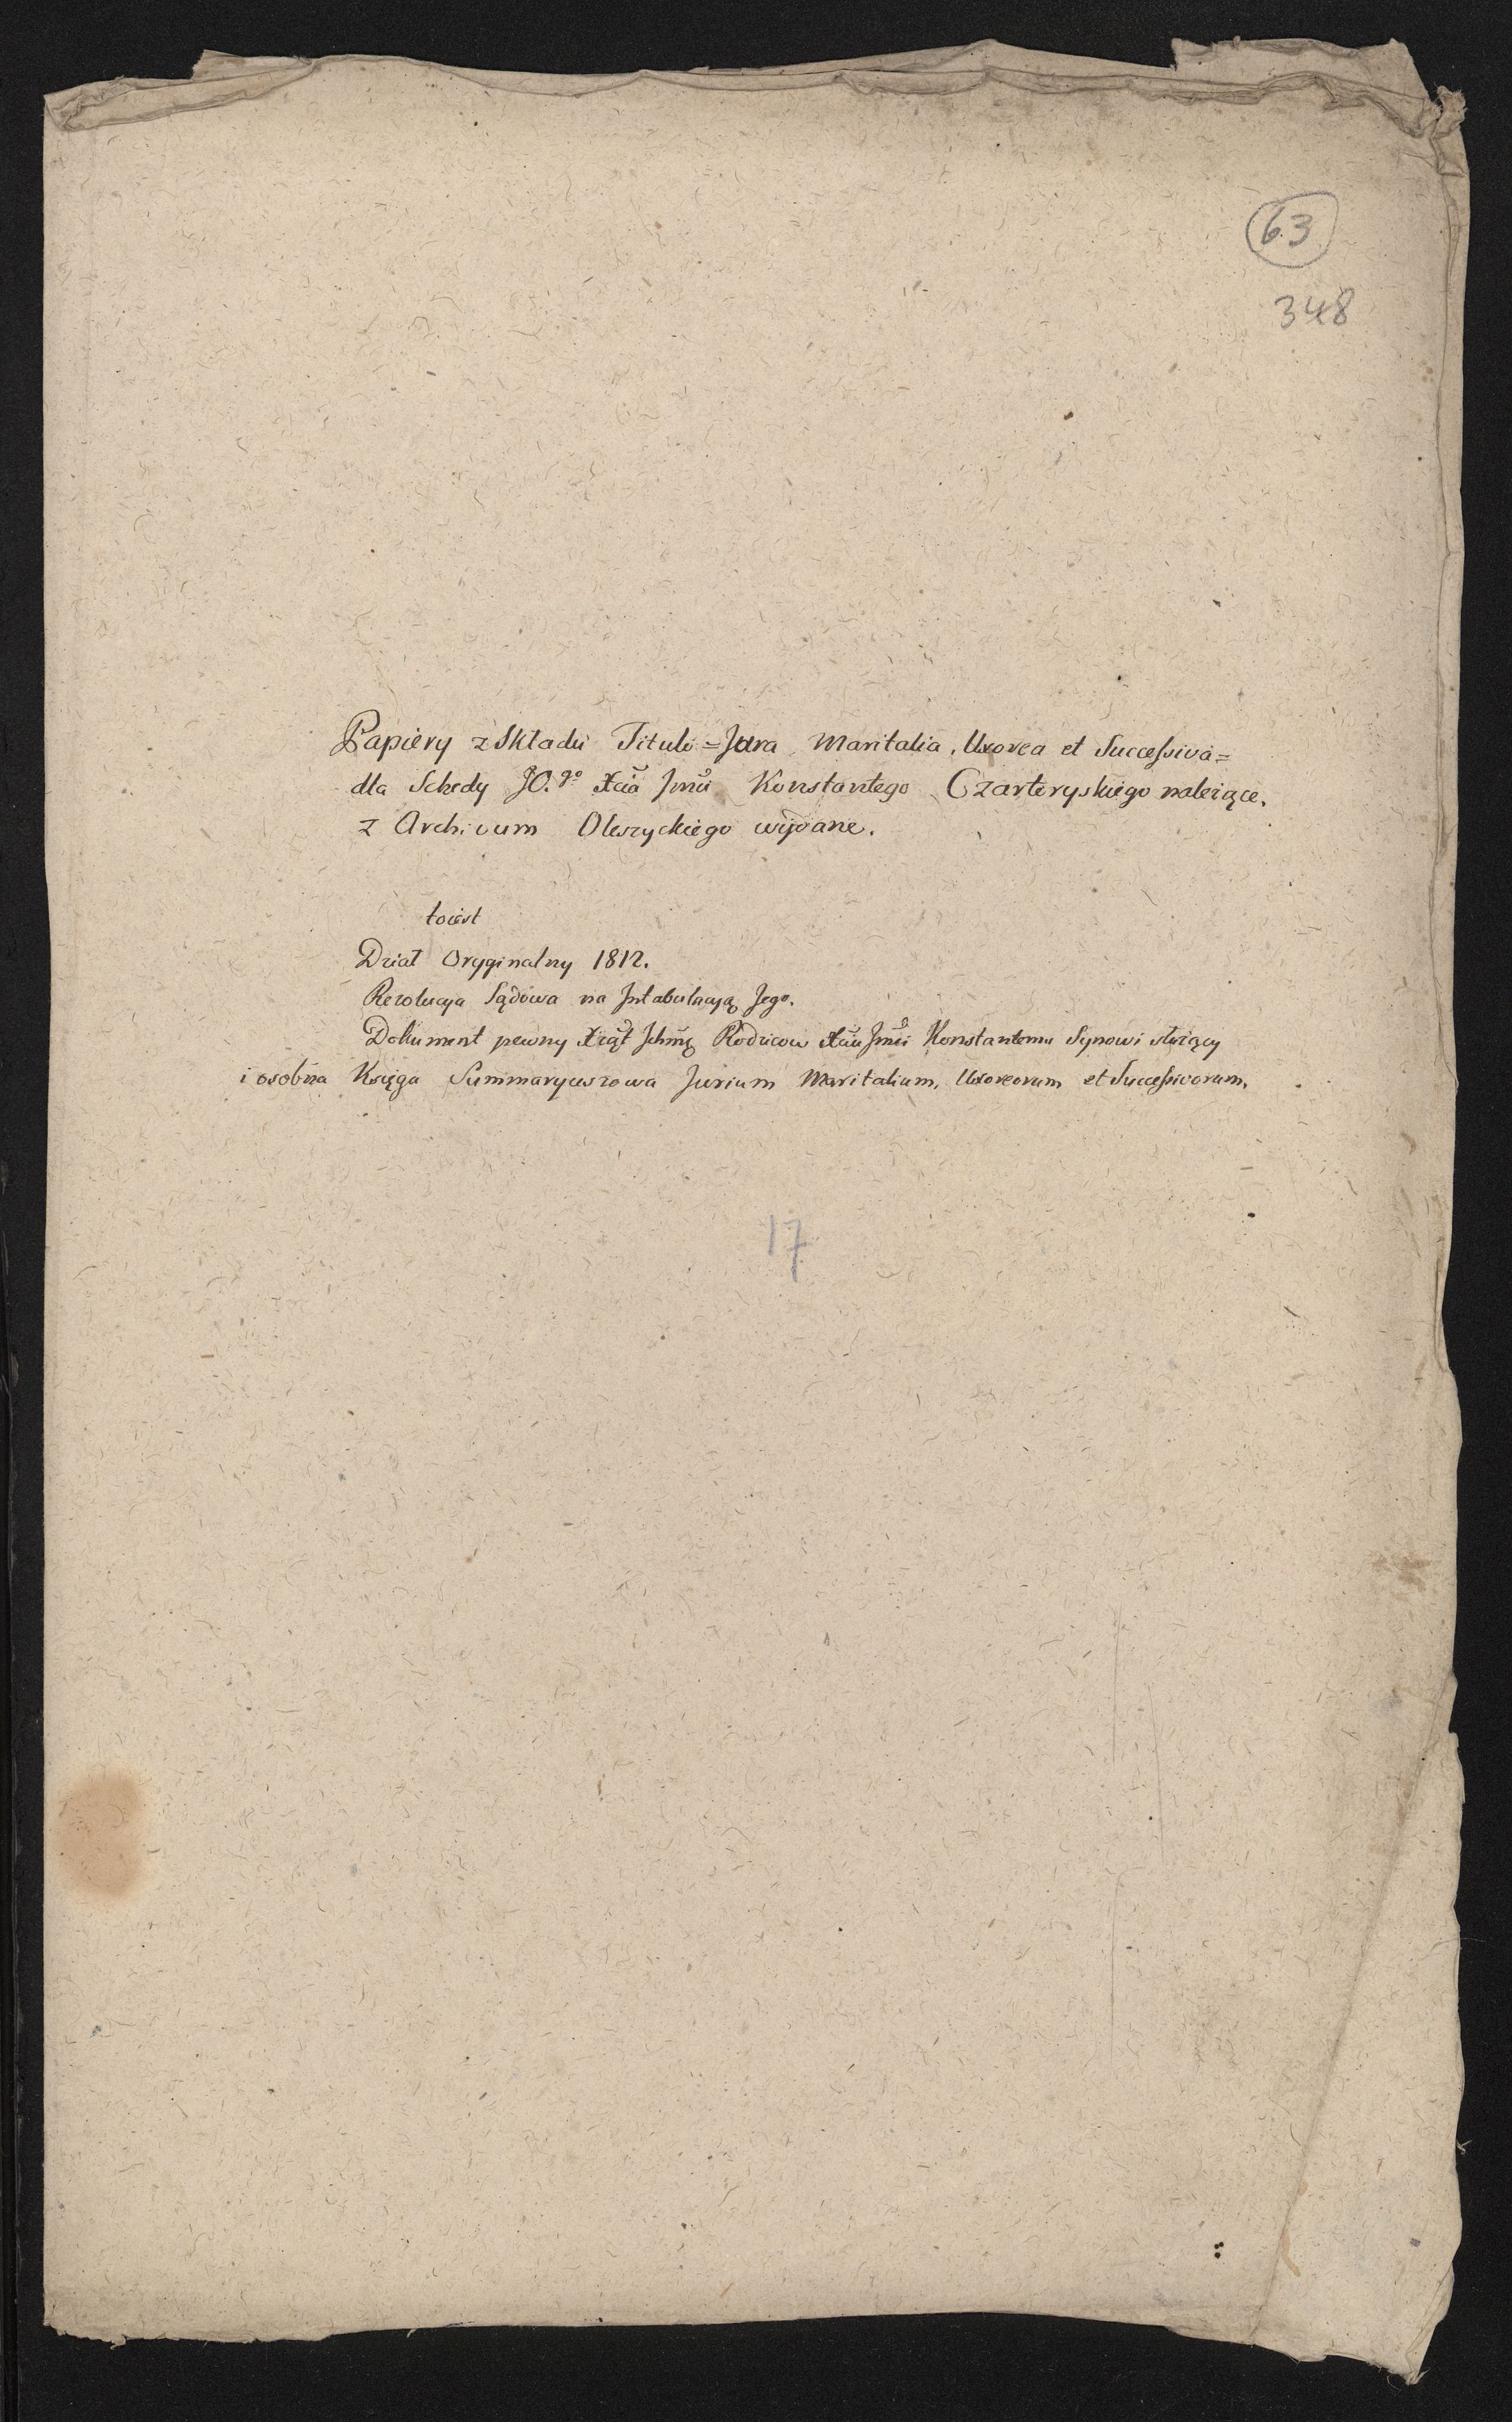 63
348
Papiery z Składu Titulo = Jura Maritalia, Uxorea et Successiva =
dla Schedy JO.go Xcia Jmci Konstantego Czartoryskiego należące,
z Archivum Oleszyckiego wydane.
toiest
Dział Oryginalny 1812.
Rezolucya Sądowa na Intabulacyą Jego.
Dokument pewny Xząt Ichmć Rodzicow Xciu Jmci Konstantemu Synowi służący
i osobna Xsięga Summaryuszowa Jurium Maritalium, Uxoreorum et Successivorum,
17